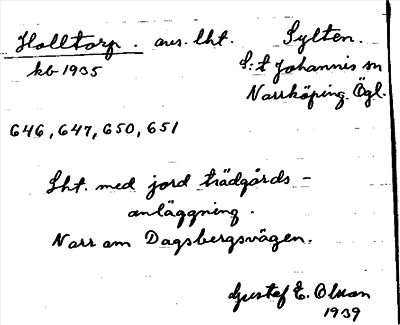 Holltorp. avs. lht. Sylten.
kb 1935 S:t Johannis sn
Norrköping. Ögl.
646, 647, 650, 651
Lht. med jord trädgårds-
anläggning.
Norr om Dagsbergsvägen.
Gustaf E. Olson
1939